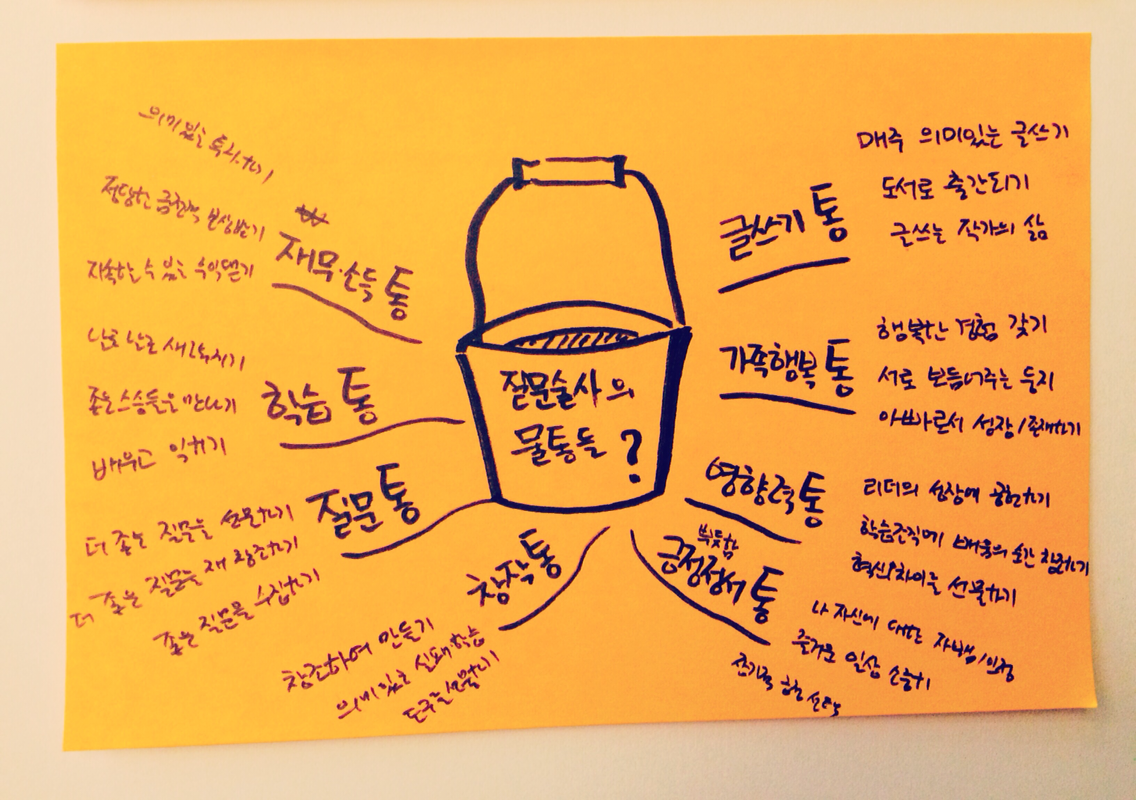 질문술사의
물통들?
글쓰기 통
매주 의미있는 글쓰기
도서로 출간되기
글쓰는 작가의 삶
가족행복 통
행복한 경험 갖기
서로 보듬어주는 둥지
아빠로서 성장/존재하기
영향력통
리더의 성장에 공헌하기
학습조직에 배움의 순간 참여하기
혁신/차이를 선물하기
뿌듯함
긍정정서 통
나 자신에 대한 자뻑/인정
즐거운 일상
창작통
창조하여 만들기
의미있는 실패 학습
도구를 선물하기
질문통
더 좋은 질문을 선물하기
더 좋은 질문을 재 창조하기
좋은 질문을 수집하기
학습 통
날로 날로 새로워지기
좋은 스승들을 만나기
배우고 익히기
₩
재무·소득 통
의미있는 투자하기
정당한 금전적 보상받기
지속할 수 있는 수익얻기